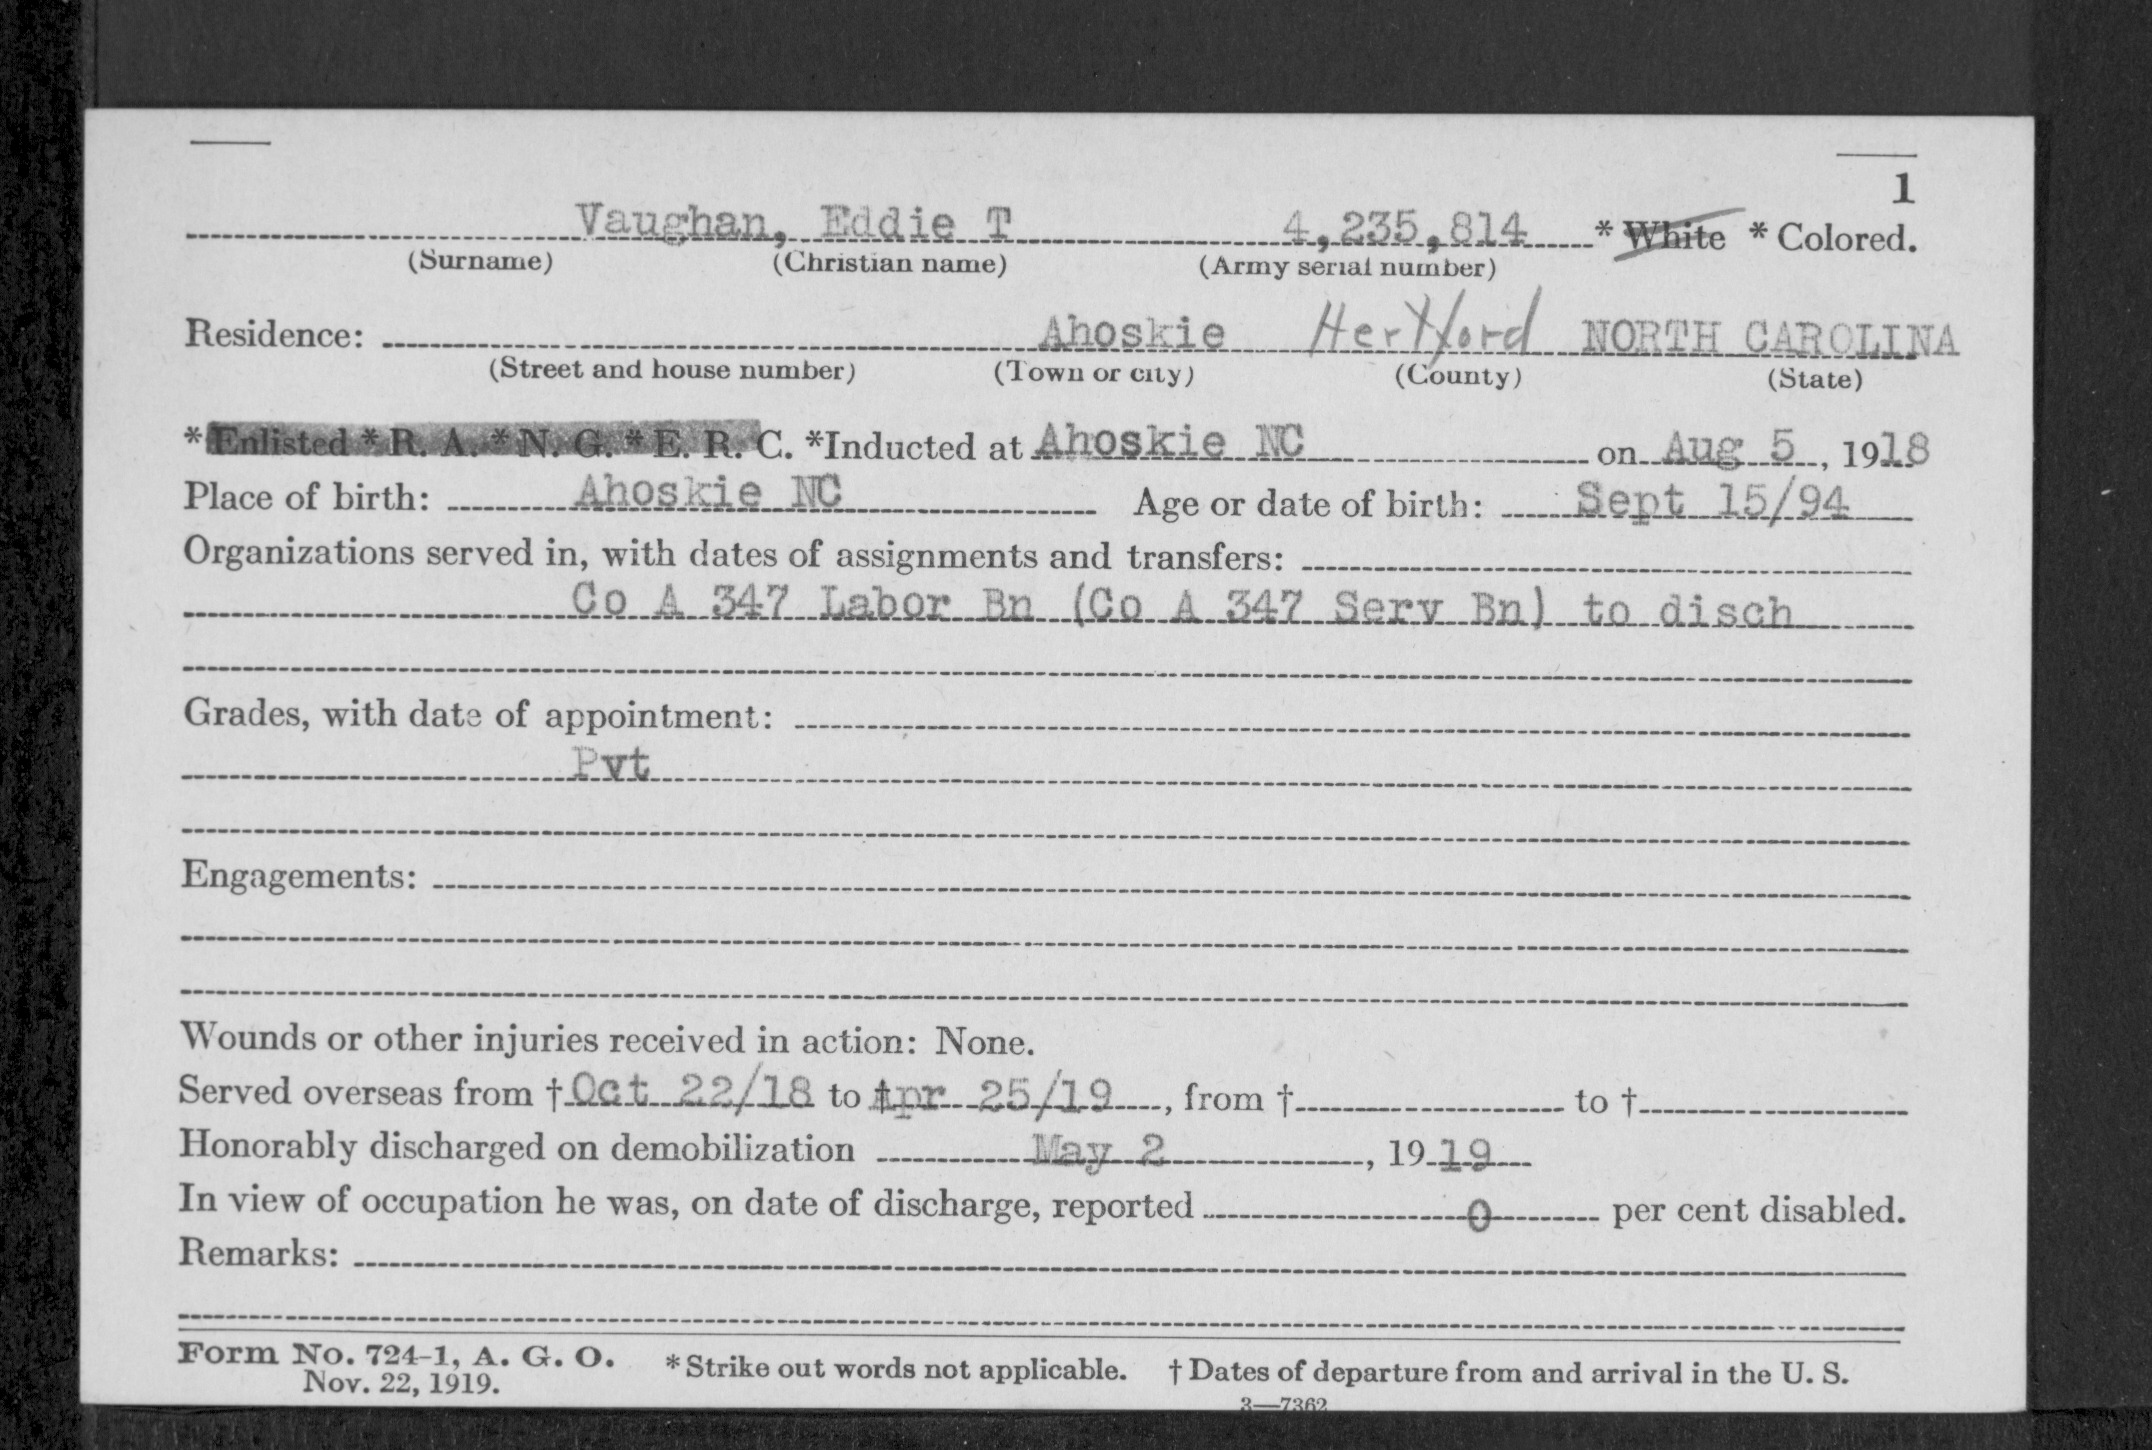 1
Vaughan, Eddie T 4,235,814 * White * Colored.
(Surname) (Christian name) (Army serial number)
Residence: Ahoskie Hertford NORTH CAROLINA
(Street and house number) (Town or city) (County) (State)
* Enlisted * R. A. * N. G. * E. R. C. *Inducted at Ahoskie NC on Aug 5, 1918
Place of birth: Ahoskie NC Age or date of birth: Sept 15/94
Organizations served in, with dates of assignments and transfers:
Co A 347 Labor Bn (Co A 347 Serv Bn) to disch
Grades, with date of appointment:
Pvt
Engagements:
Wounds or other injuries received in action: None.
Served overseas from † Oct 22/18 to † Apr 25/19, from † to †
Honorably discharged on demobilization May 2, 1919
In view of occupation he was, on date of discharge, reported 0 per cent disabled.
Remarks:
Form No. 724-1, A. G. O. * Strike out words not applicable. † Dates of departure from and arrival in the U. S.
Nov. 22, 1919.
3—7362